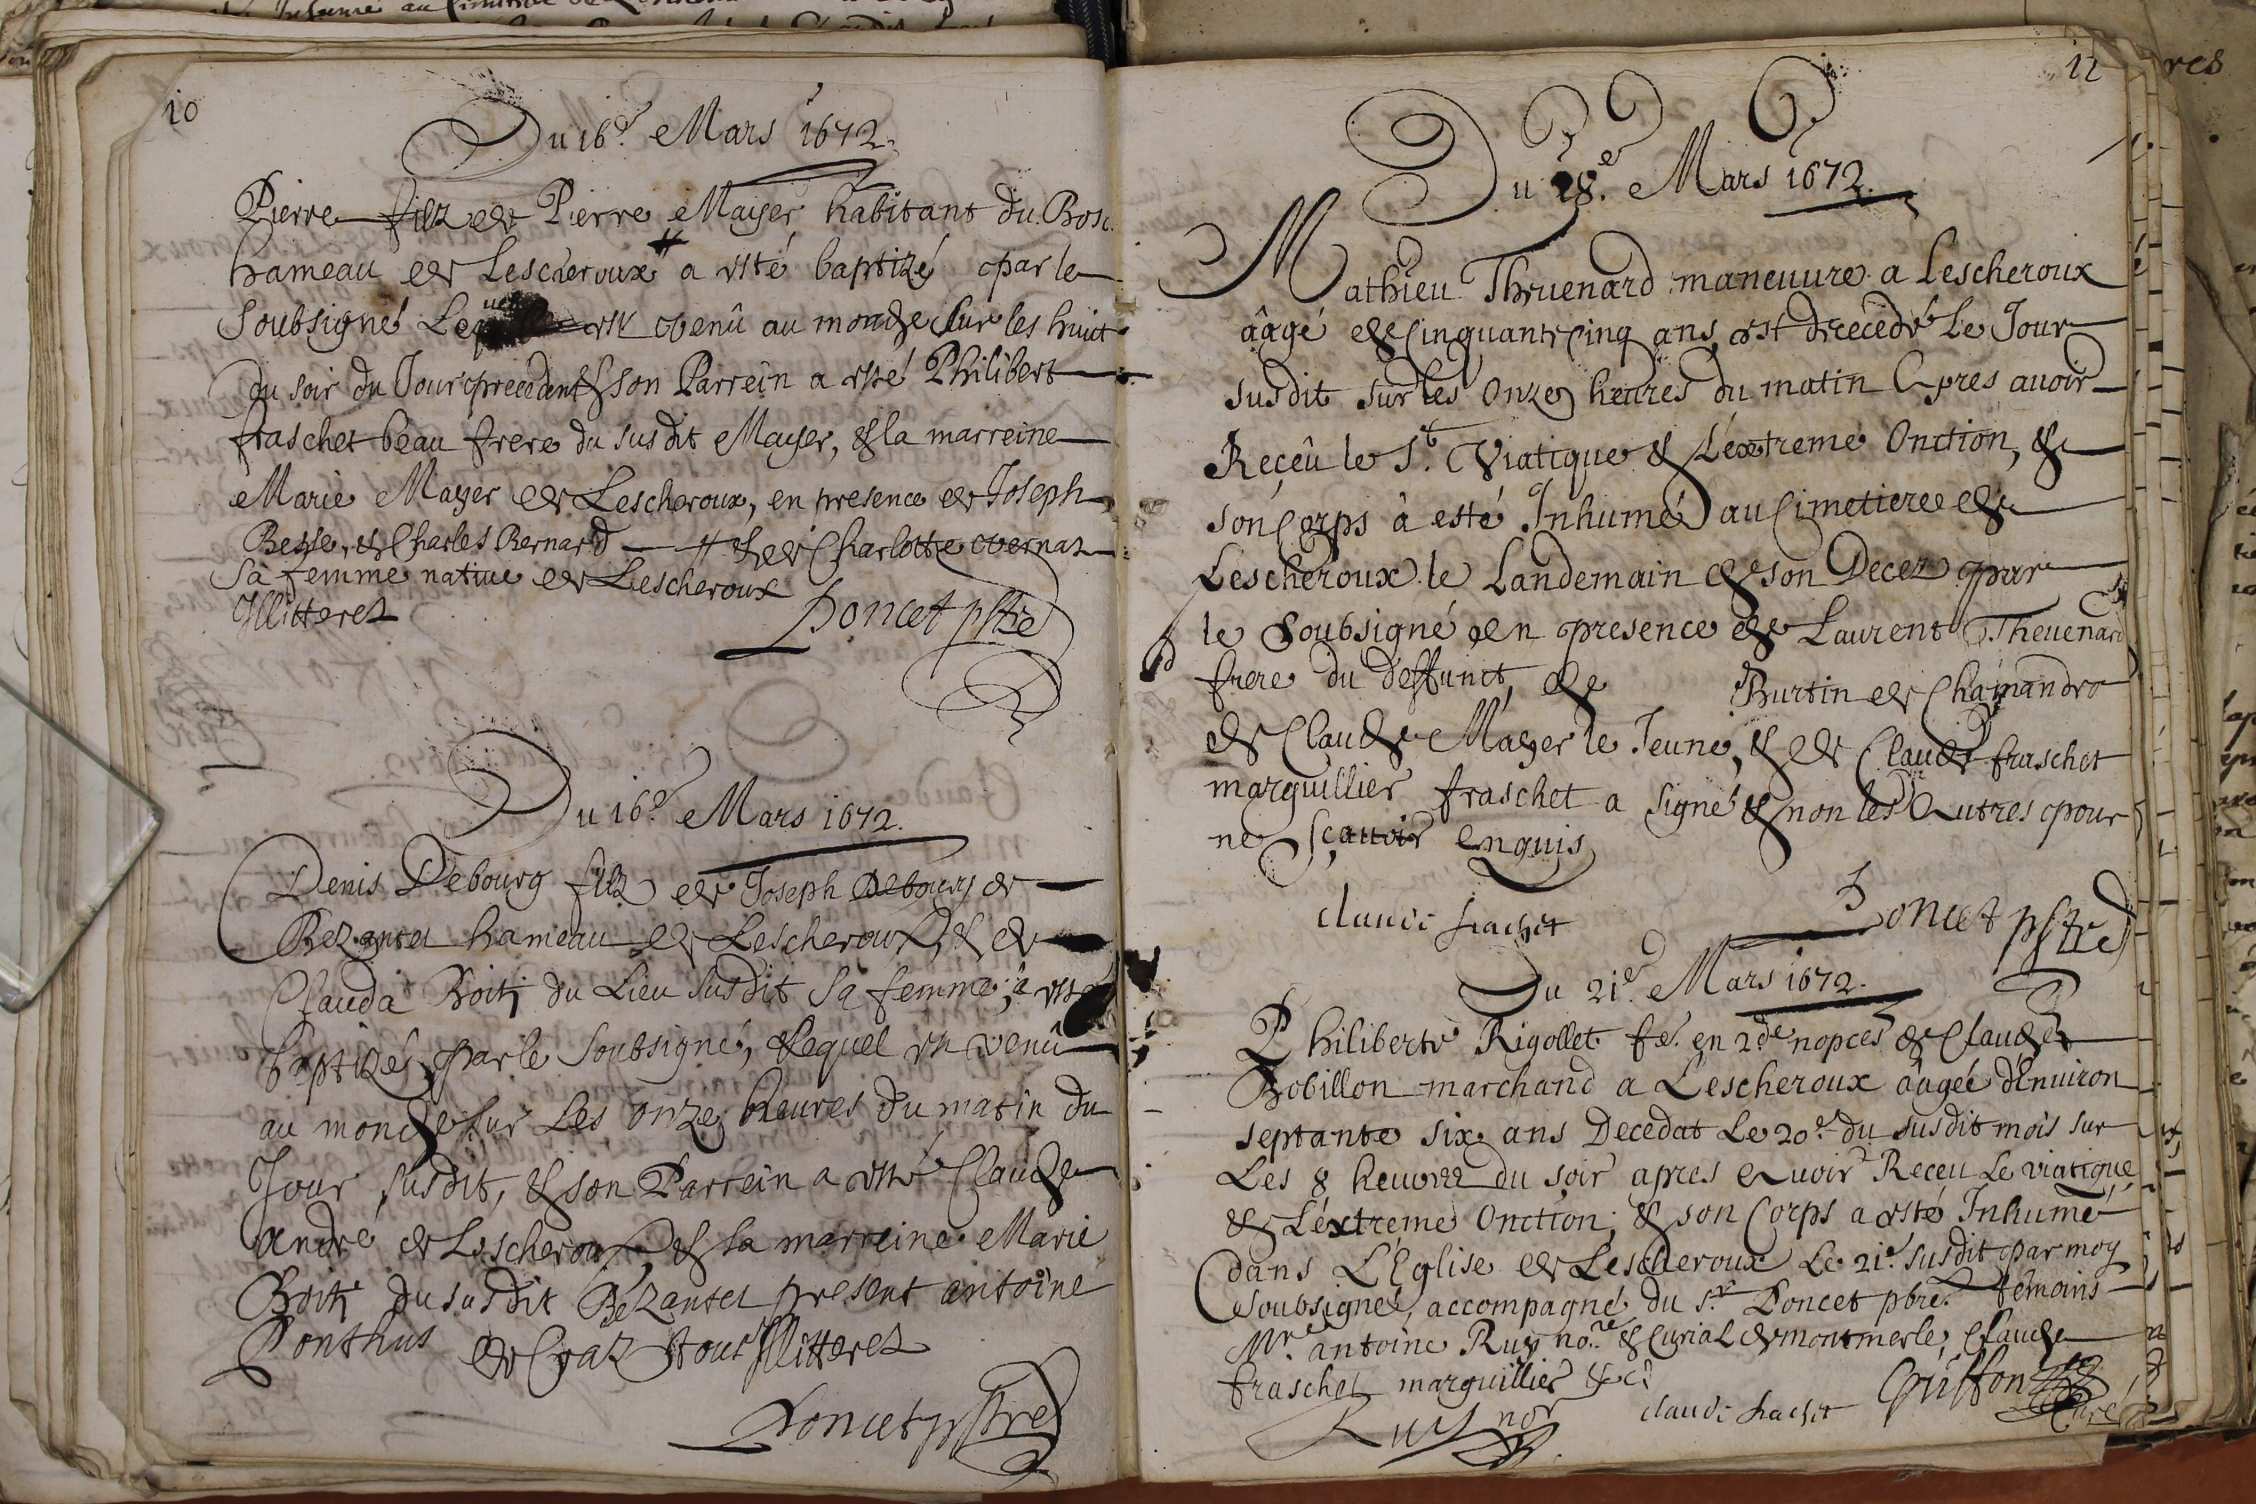 10
Du 16e. Mars 1672.
Pierre filz de Pierre Mayer habitant du Bosc
hameau de Lescheroux # a esté baptizé par le
Soubsigné Lequel est venû au monde sur les huict
du soir du Jour precedent & son Parrein a esté Philibert
fraschet beau frere du susdit Mayer, & la marreine
Marie Mayer de Lescheroux, en presence de Joseph
Besse, & Charles Bernard # & de Charlotte vernaz
sa femme native de Lescheroux
Illitterez
Poncet pstre
Du 16e. Mars 1672.
Denis Debourg filz de Joseph Debourg de
Bezantet hameau de Lescheroux, & de
Clauda Boiti du Lieu susdit sa femme, a esté
baptizé par le soubsigné, Lequel est venû
au monde sur Les onze heures du matin du
Jour susdit, & son Parrein a esté Claude
André de Lescheroux, & la marreine Marie
Boiti du susdit Bezantet present antoine
Ponthus de Craz tous Illitterez
Poncet pstre
11
Du 18.e Mars 1672.
Mathieu Thevenard maneuvre a Lescheroux
âagé de Cinquante Cinq ans, est decedé Le Jour
susdit sur les Onze heures du matin Apres avoir
Reçêu le St. Viatique & L'extreme Onction, &
son Corps â esté Inhumé au Cimetiere de
Lescheroux le Landemain de son Decez par
le Soubsigné en presence de Laurent Thevenard
frere du deffunct, de Burtin de Chamandre
de Claude Mayer le Jeune, & de Claude fraschet
marguillier fraschet a signé & non les Autres pour
ne sçavoir enquis
claude frachet
Poncet pstre
Du 21e. Mars 1672.
Philiberte Rigollet fe. en 2de nopces de Claude
Bobillon marchand a Lescheroux âagée d'Environ
septante six ans Decedat Le 20e. du susdit mois sur
Les 8 heures du soir apres Avoir Receu Le viatique
& L'éxtreme Onction, & son Corps a esté Inhumé
dans L'Eglise de Lescheroux Le 21e susdit par moy
soubsigné, accompagné du sr. Poncet pbre. temoins
Mre. antoine Ruy nore. & Curial de montmerle, Claude
fraschet marguillier &c.
Ruy nore
claude frachet
Griffon
Curé